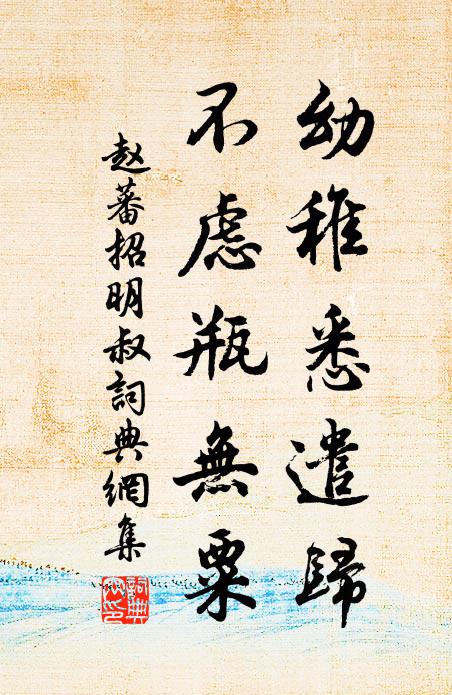 幼稚悉遣歸
不慮瓶無粟
赵蕃招明叔詞典網集